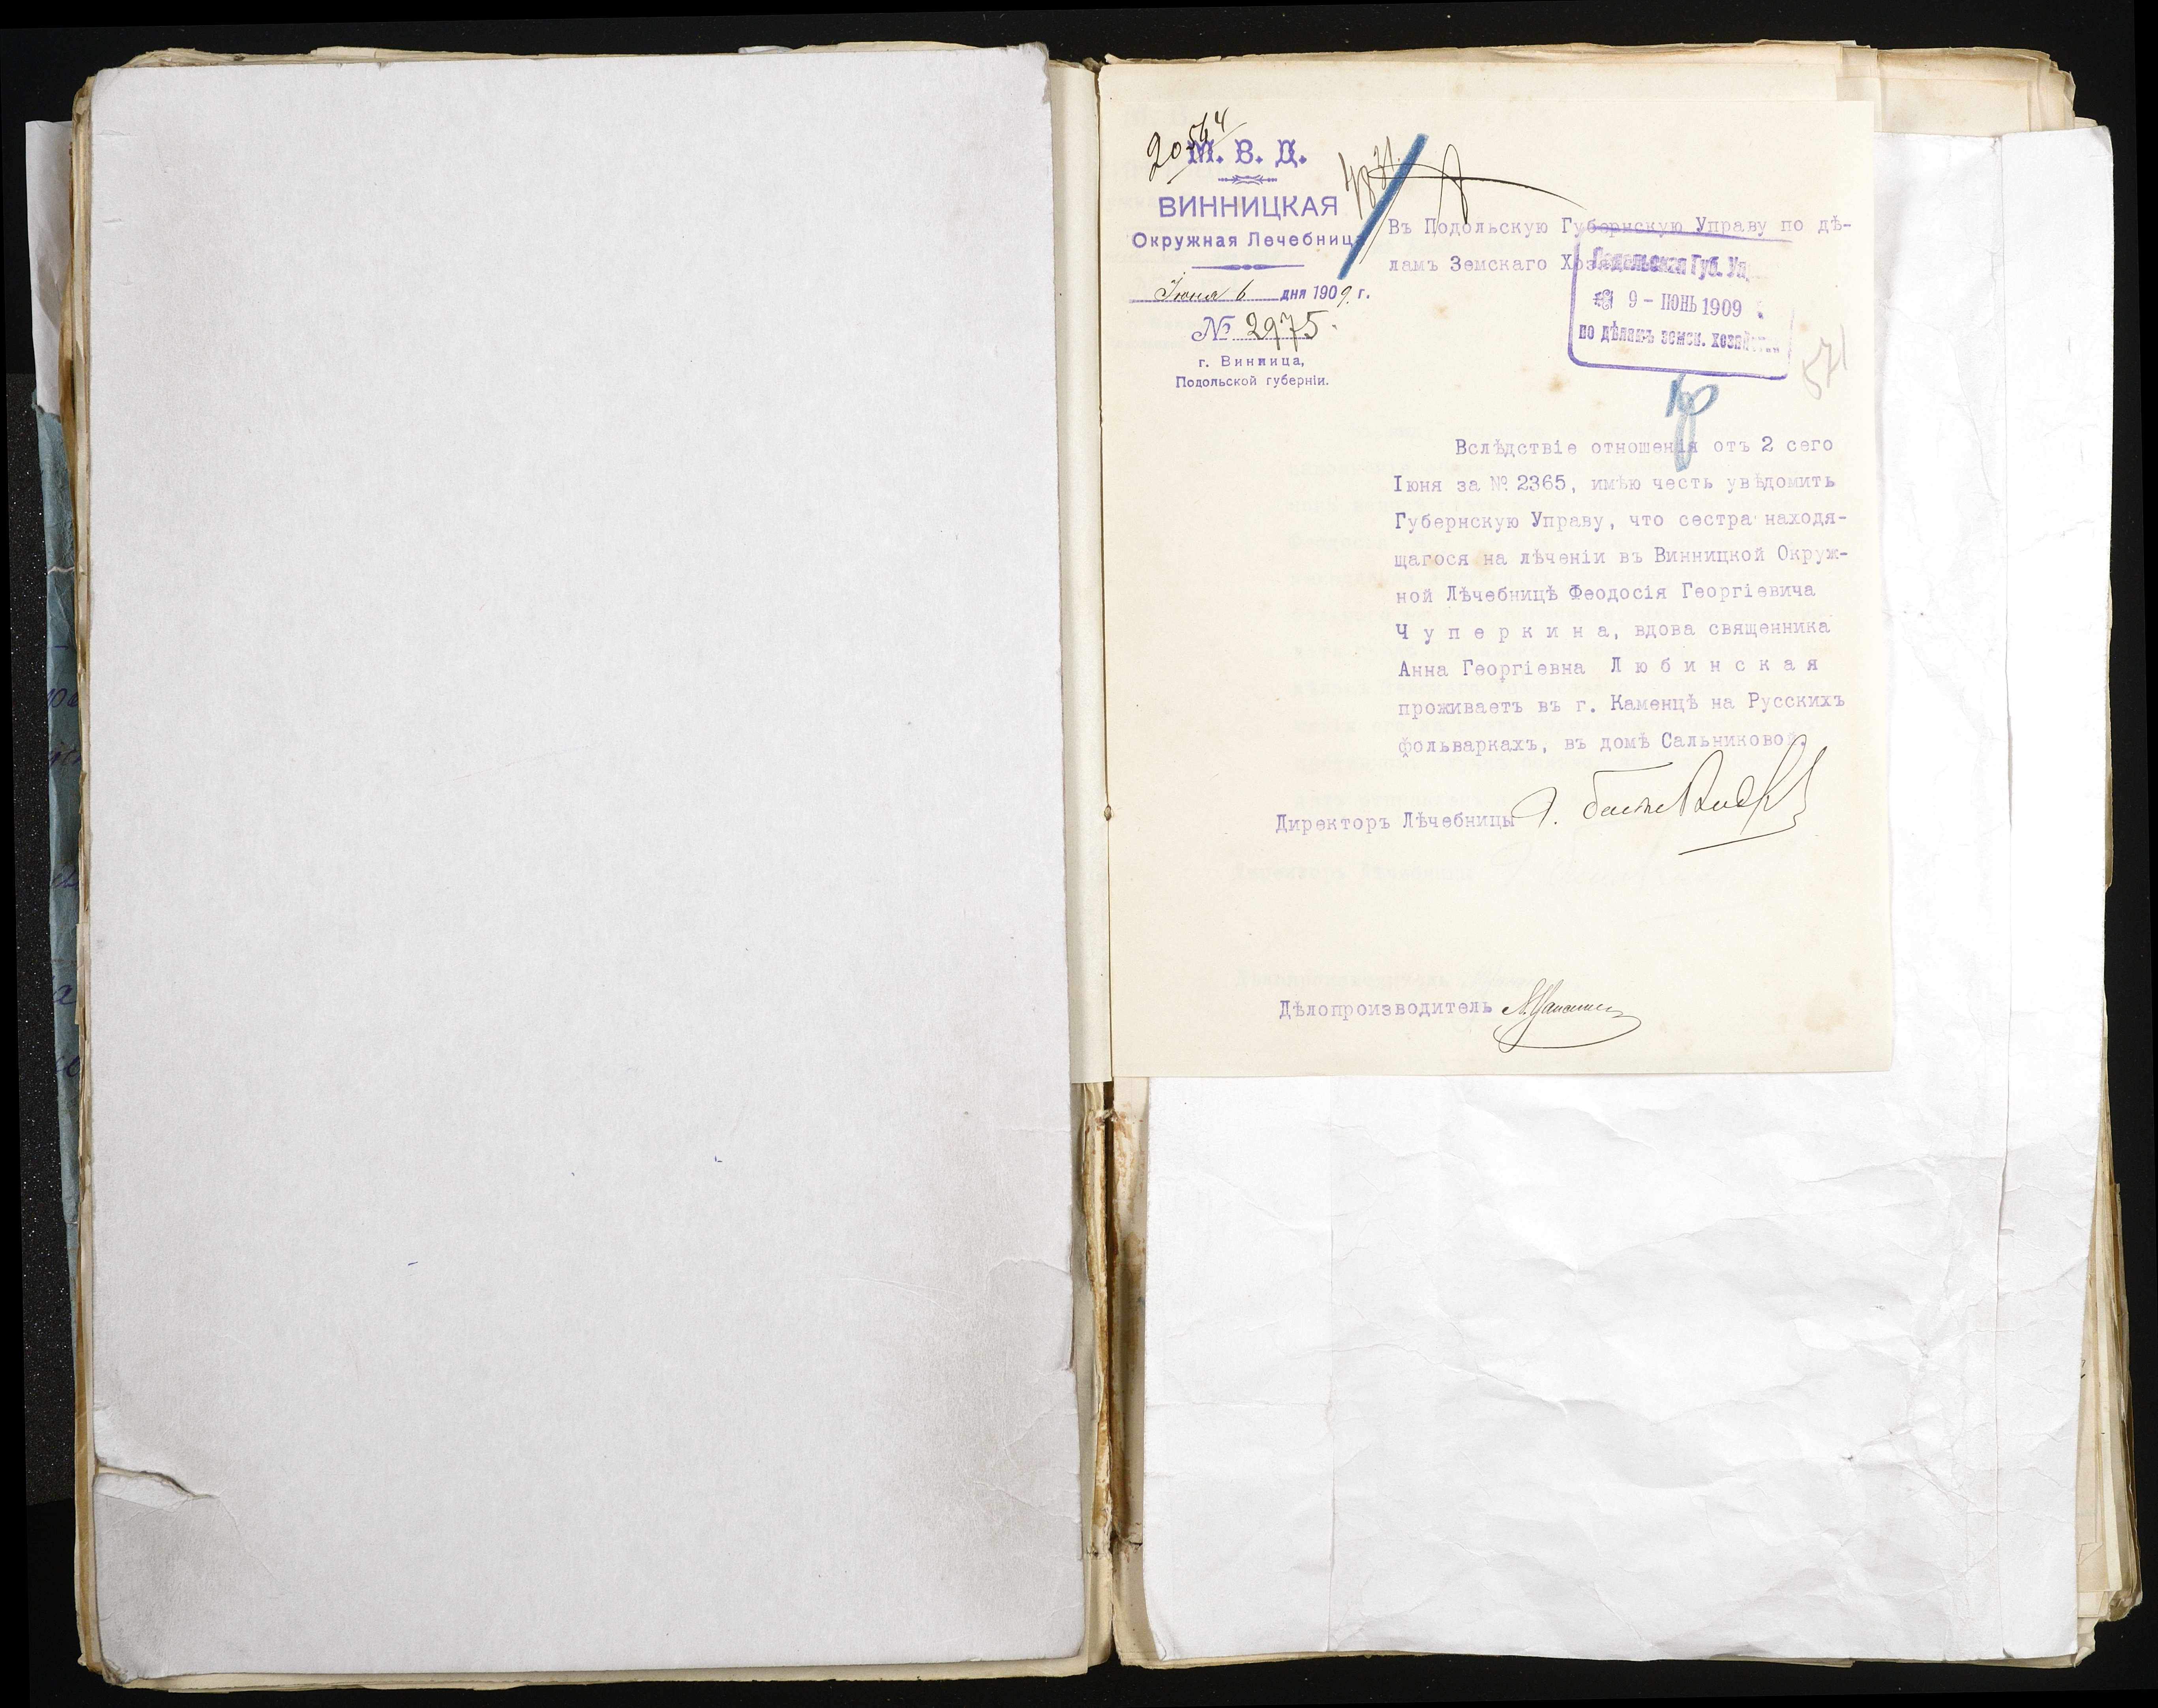 20564
М. В. Д.
ВИННИЦКАЯ
Окружная Лечебница
Іюня 6 дня 1909 г.
№ 2975.
г. Винница,
Подольской губерніи.
4871.
Въ Подольскую Губернскую Управу по дѣ-
ламъ Земскаго
Подольская Губ.
9 - ІЮНЬ 1909
по дѣламъ земск.
571
Вслѣдствіе отношенія отъ 2 сего
Іюня за № 2365, имѣю честь увѣдомить
Губернскую Управу, что сестра находя-
щагося на лѣченіи въ Винницкой Окруж-
ной Лѣчебницѣ Феодосія Георгіевича
Ч у п е р к и н а, вдова священника
Анна Георгіевна Л ю б и н с к а я
проживаетъ въ г. Каменцѣ на Русскихъ
фольваркахъ, въ домѣ Сальниковой.
Директоръ Лѣчебницы
Дѣлопроизводитель